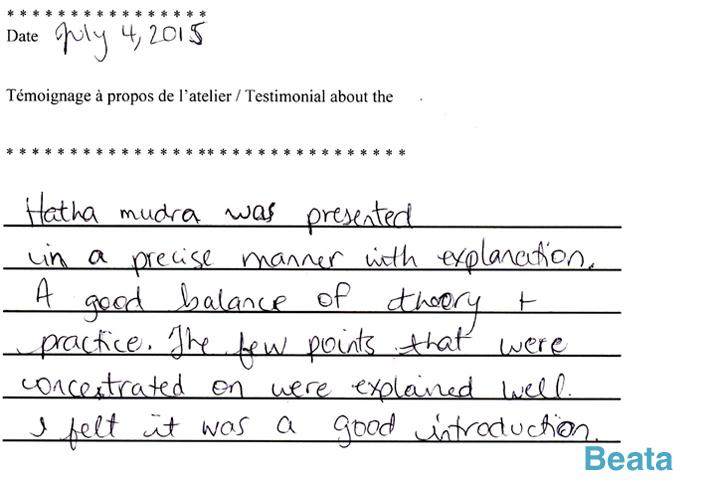 * * * * * * * * * * * * * * * *
Date July 4, 2015
Témoignage à propos de l'atelier / Testimonial about the
* * * * * * * * * * * * * * * ** * * * * * * * * * * * * * * * *
Hatha mudra was presented
in a precise manner with explanation.
A good balance of theory +
practice. The few points that were
concestrated on were explained well.
I felt it was a good introduction.
Beata